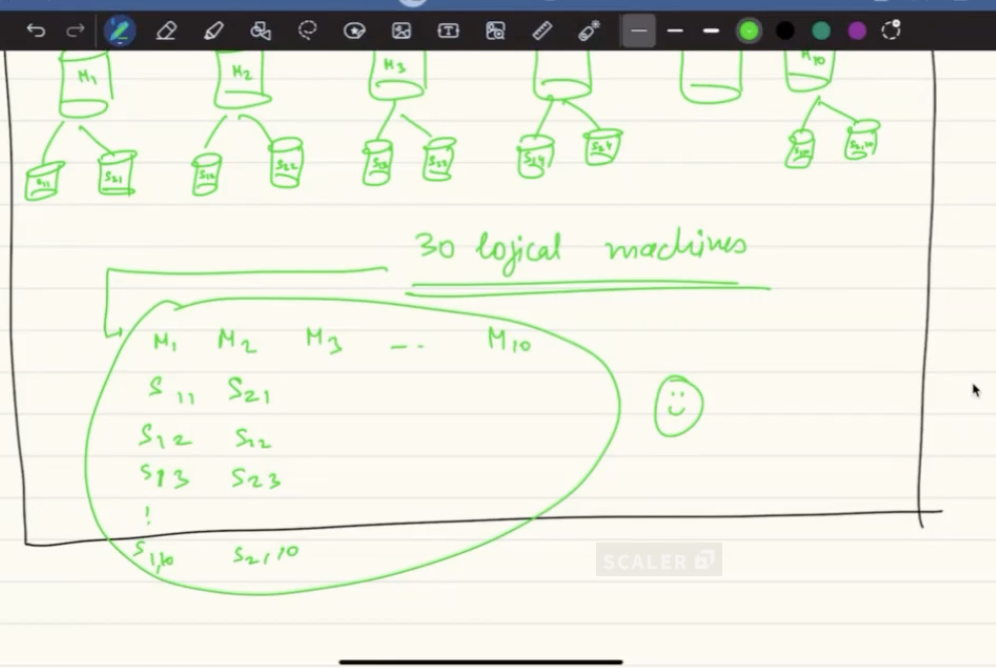 M1 M2 M3 M10
S11 S21 S12 S22 S13 S23 S14 S24 S2,10
30 logical machines
M1 M2 M3 -- . . M10
S11 S21
S12 S22
S13 S23
!
S1,10 S2,10
SCALER